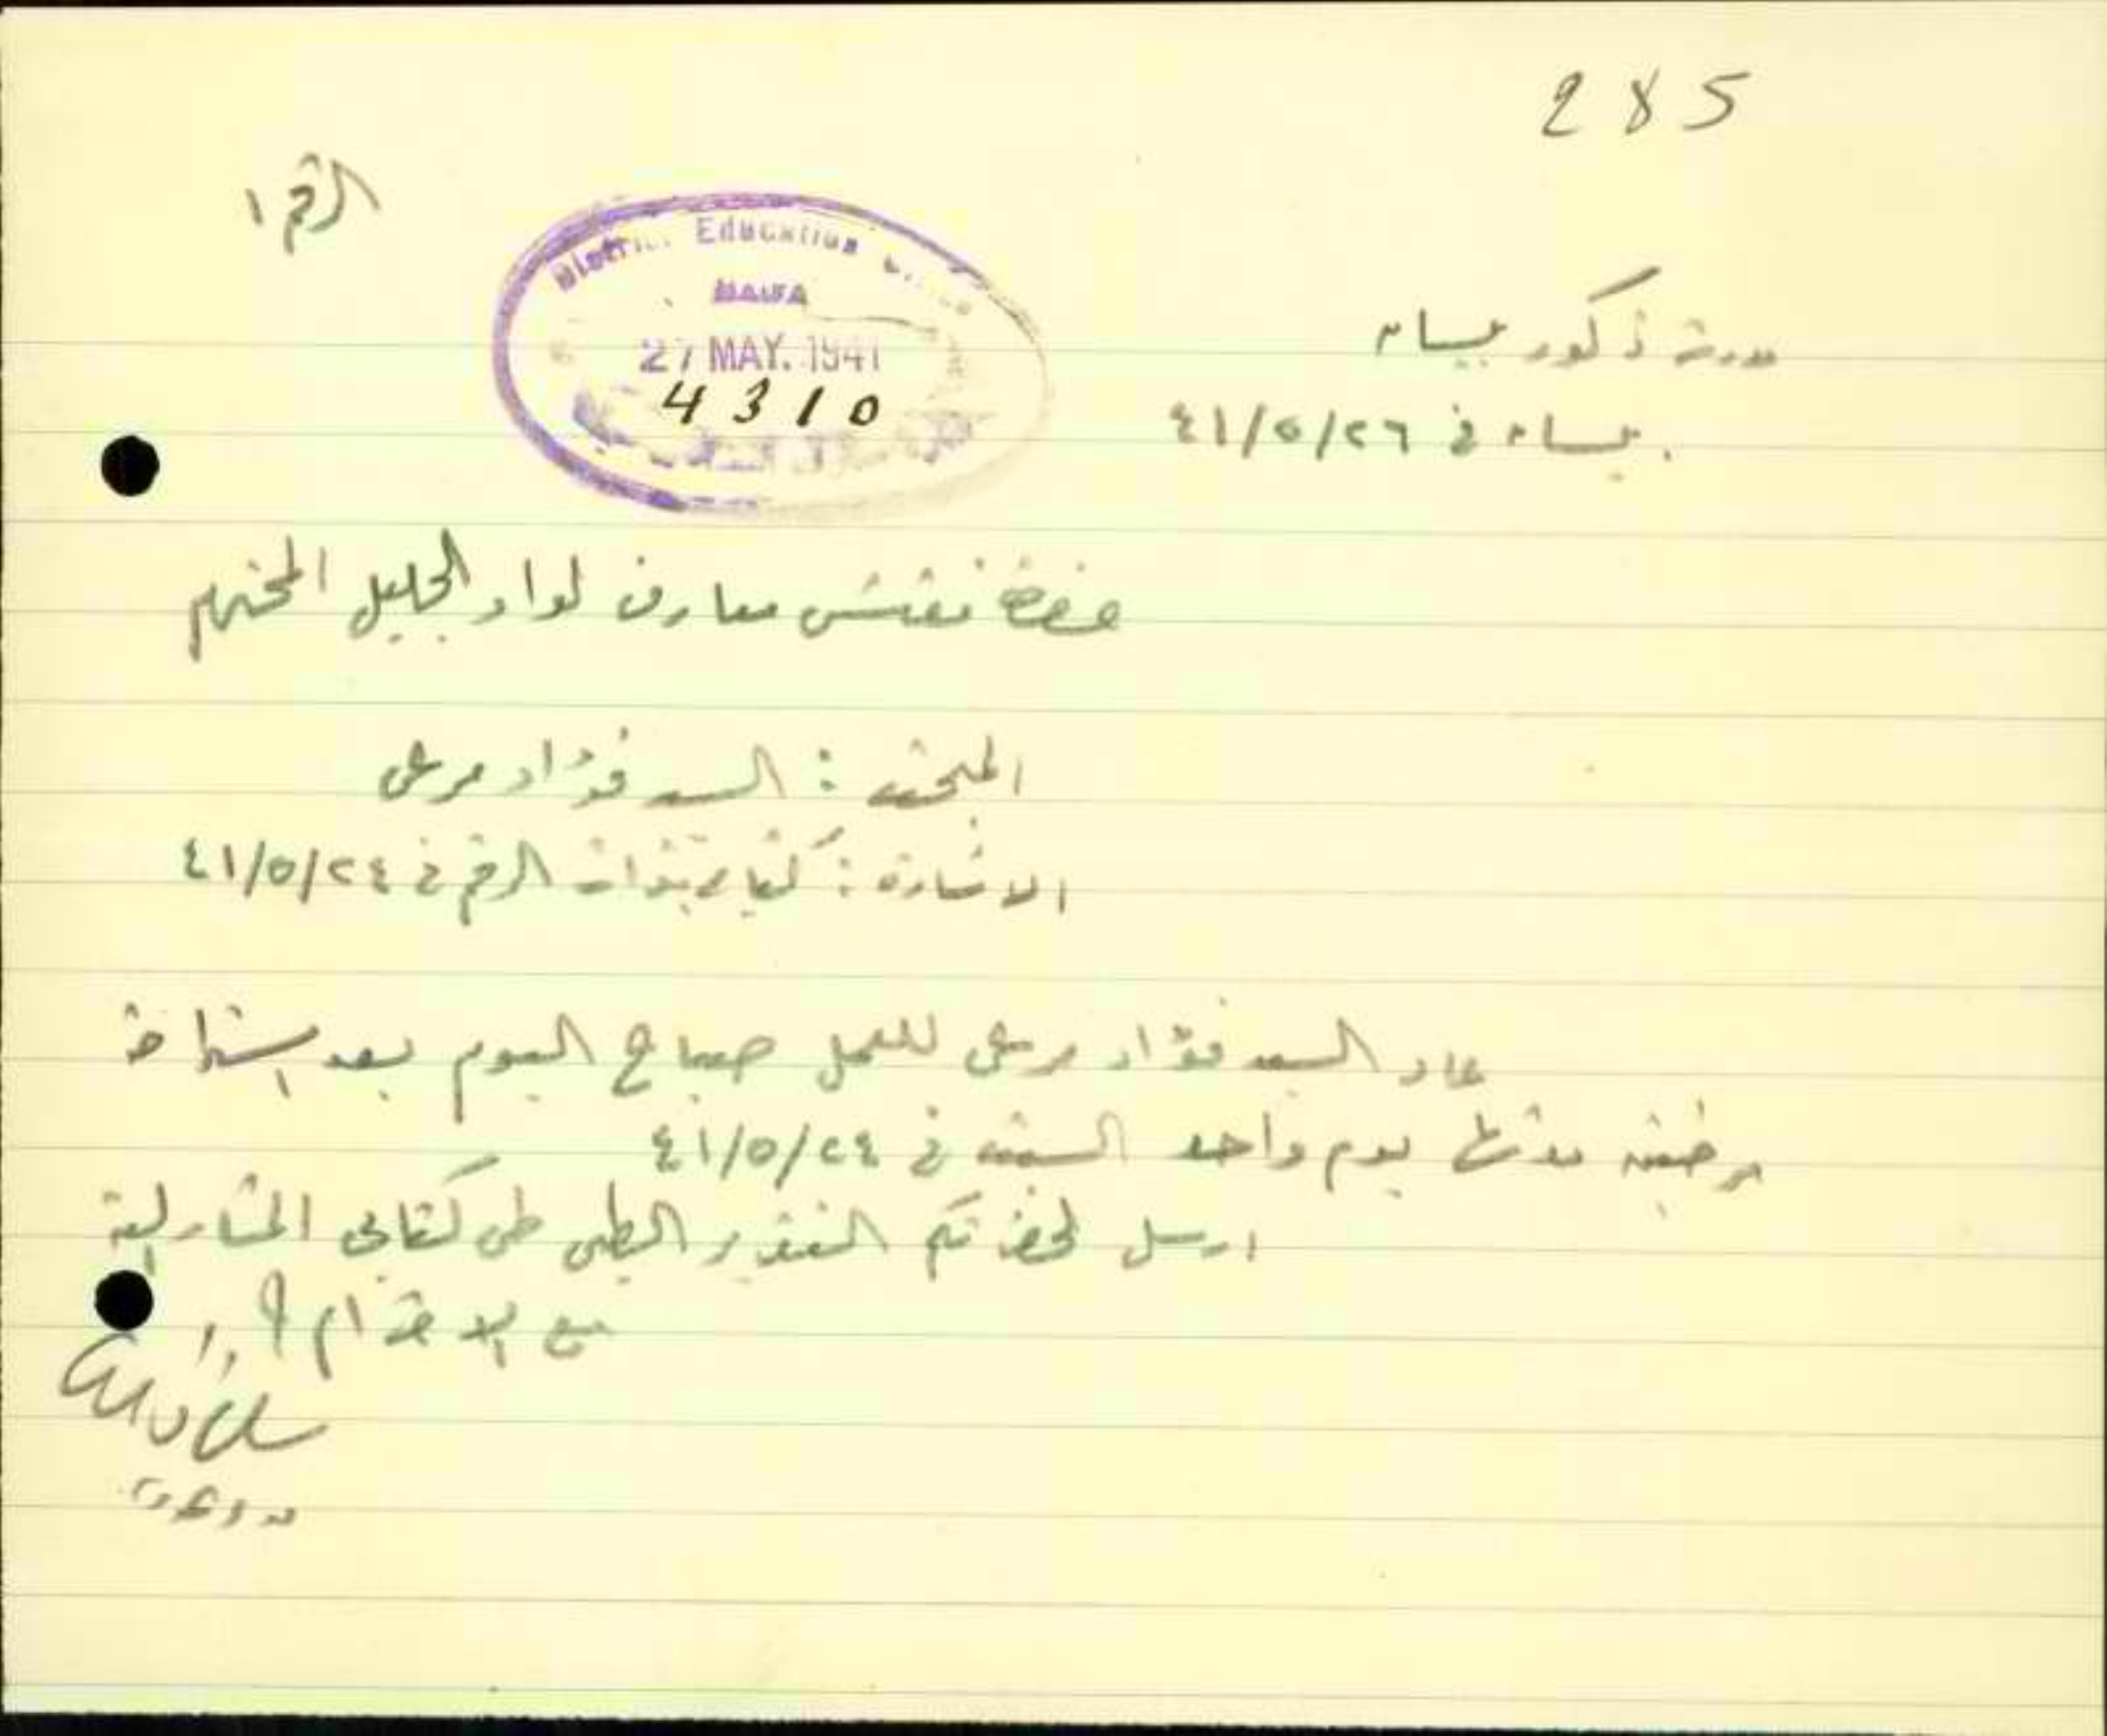 285
الرقم ١
District Education Office
HAIFA
27 MAY. 1941
4310
مدرسة ذكور بيسان
بيسان في ٢٦/٥/٤١
حضرة مفتش معارف لواء الجليل المحترم
المبحث : السيد فؤاد مرعي
الاشارة : كتابي بذات الرقم في ٢٤/٥/٤١
عاد السيد فؤاد مرعي للعمل صباح اليوم بعد استراحة
مرضية مدتها يوم واحد السبت في ٢٤/٥/٤١
ارسل لحضرتكم التقرير الطبي طي كتابي المشار اليه
مع الاحترام